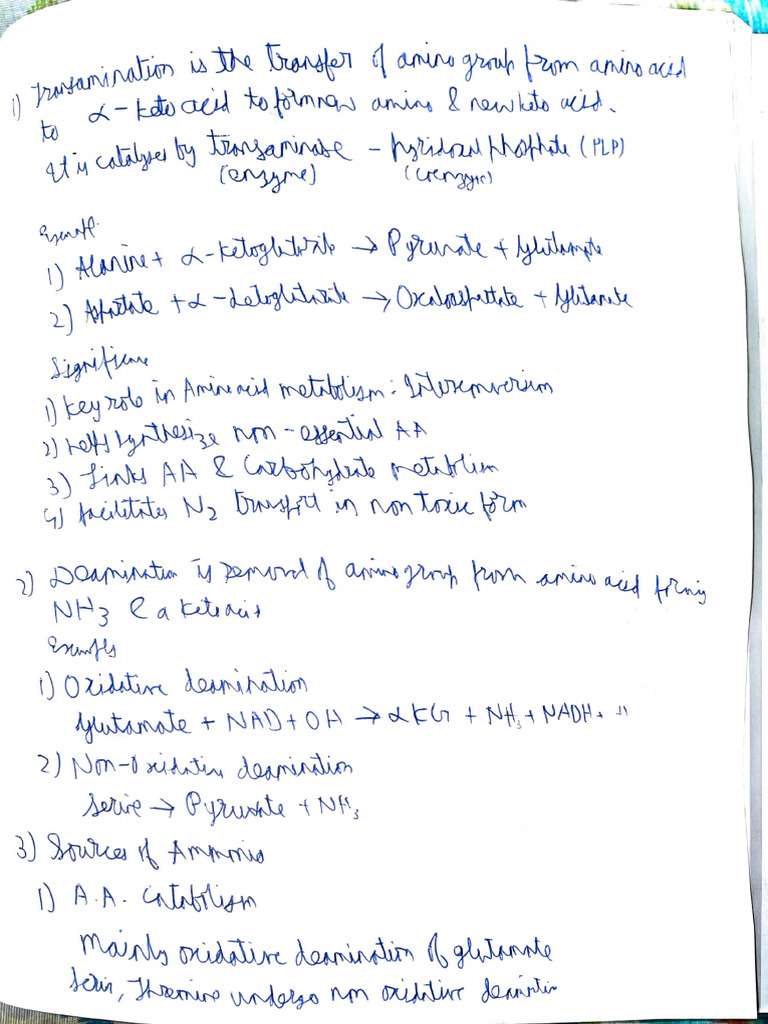 1) Transamination is the transfer of amino group from amino acid
to α-keto acid to form new amino & new keto acid.
It is catalyses by transaminase - pyridoxal phosphate (PLP)
(enzyme) (Coenzyme)
Example
1) Alanine + α-Ketoglutarate → Pyruvate + Glutamate
2) Aspartate + α-ketoglutarate → + Glutamate
Significance
1) Key role in Amino acid metabolism: Interconversion
2) Helps synthesize non-essential AA
3) Links AA & Carbohydrate metabolism
4) facilitates N2 transport in non toxic form
2) Deamination is removal of amino group from amino acid forming
NH3 & a keto acid
Examples
1) Oxidative deamination
Glutamate + NAD + OH → αKG + NH3 + NADH +
2) Non-Oxidative deamination
Serine → Pyruvate + NH3
3) Sources of Ammonia
1) A.A. Catabolism
Mainly oxidative deamination of glutamate
Serin, Threonine undergo non oxidative deamination